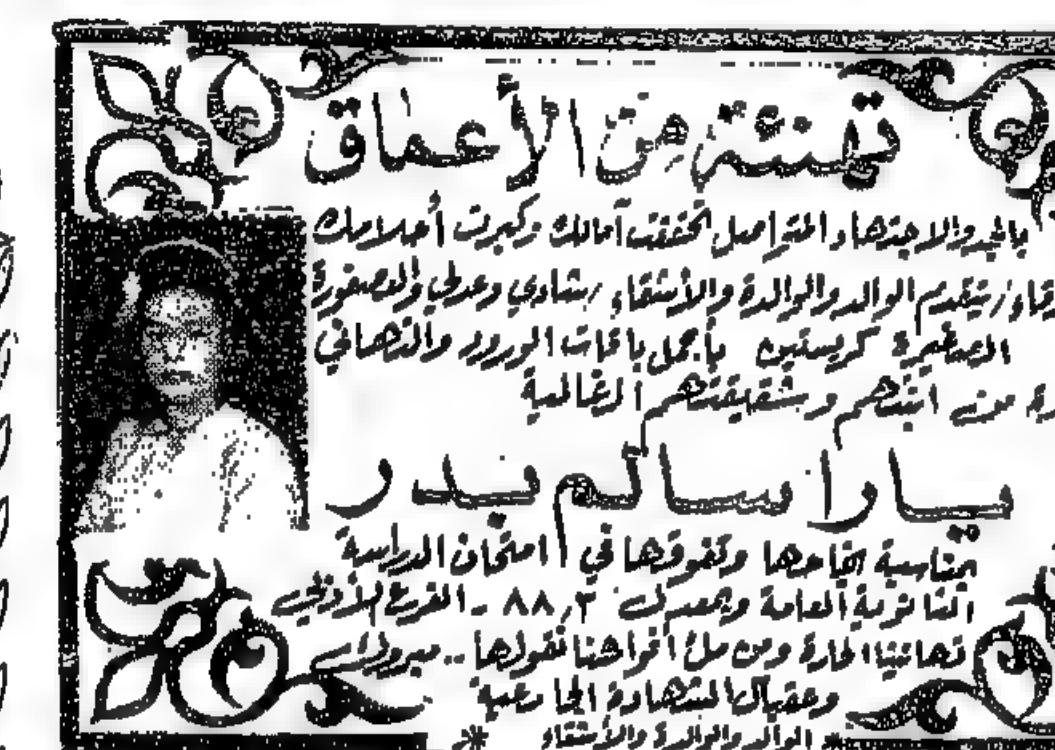 تهنئة من الأعماق
بالجد والاجتهاد المتواصل تحققت آمالك وكبرت أحلامك
يتقدم الوالد والوالدة والأشقاء شادي وعدلي والعصفورة
الصغيرة كريستين بأجمل باقات الورود والتهاني
من ابنتهم وشقيقتهم الغالية
يارا سالم بدر
بمناسبة نجاحها وتفوقها في امتحان الدراسة
الثانوية العامة وبمعدل ٨٨,٣ - الفرع الأدبي
تهانينا الحارة ومن ملئ أفراحنا نقولها .. مبروك
وعقبال الشهادة الجامعية
* الوالد والوالدة والأشقاء *